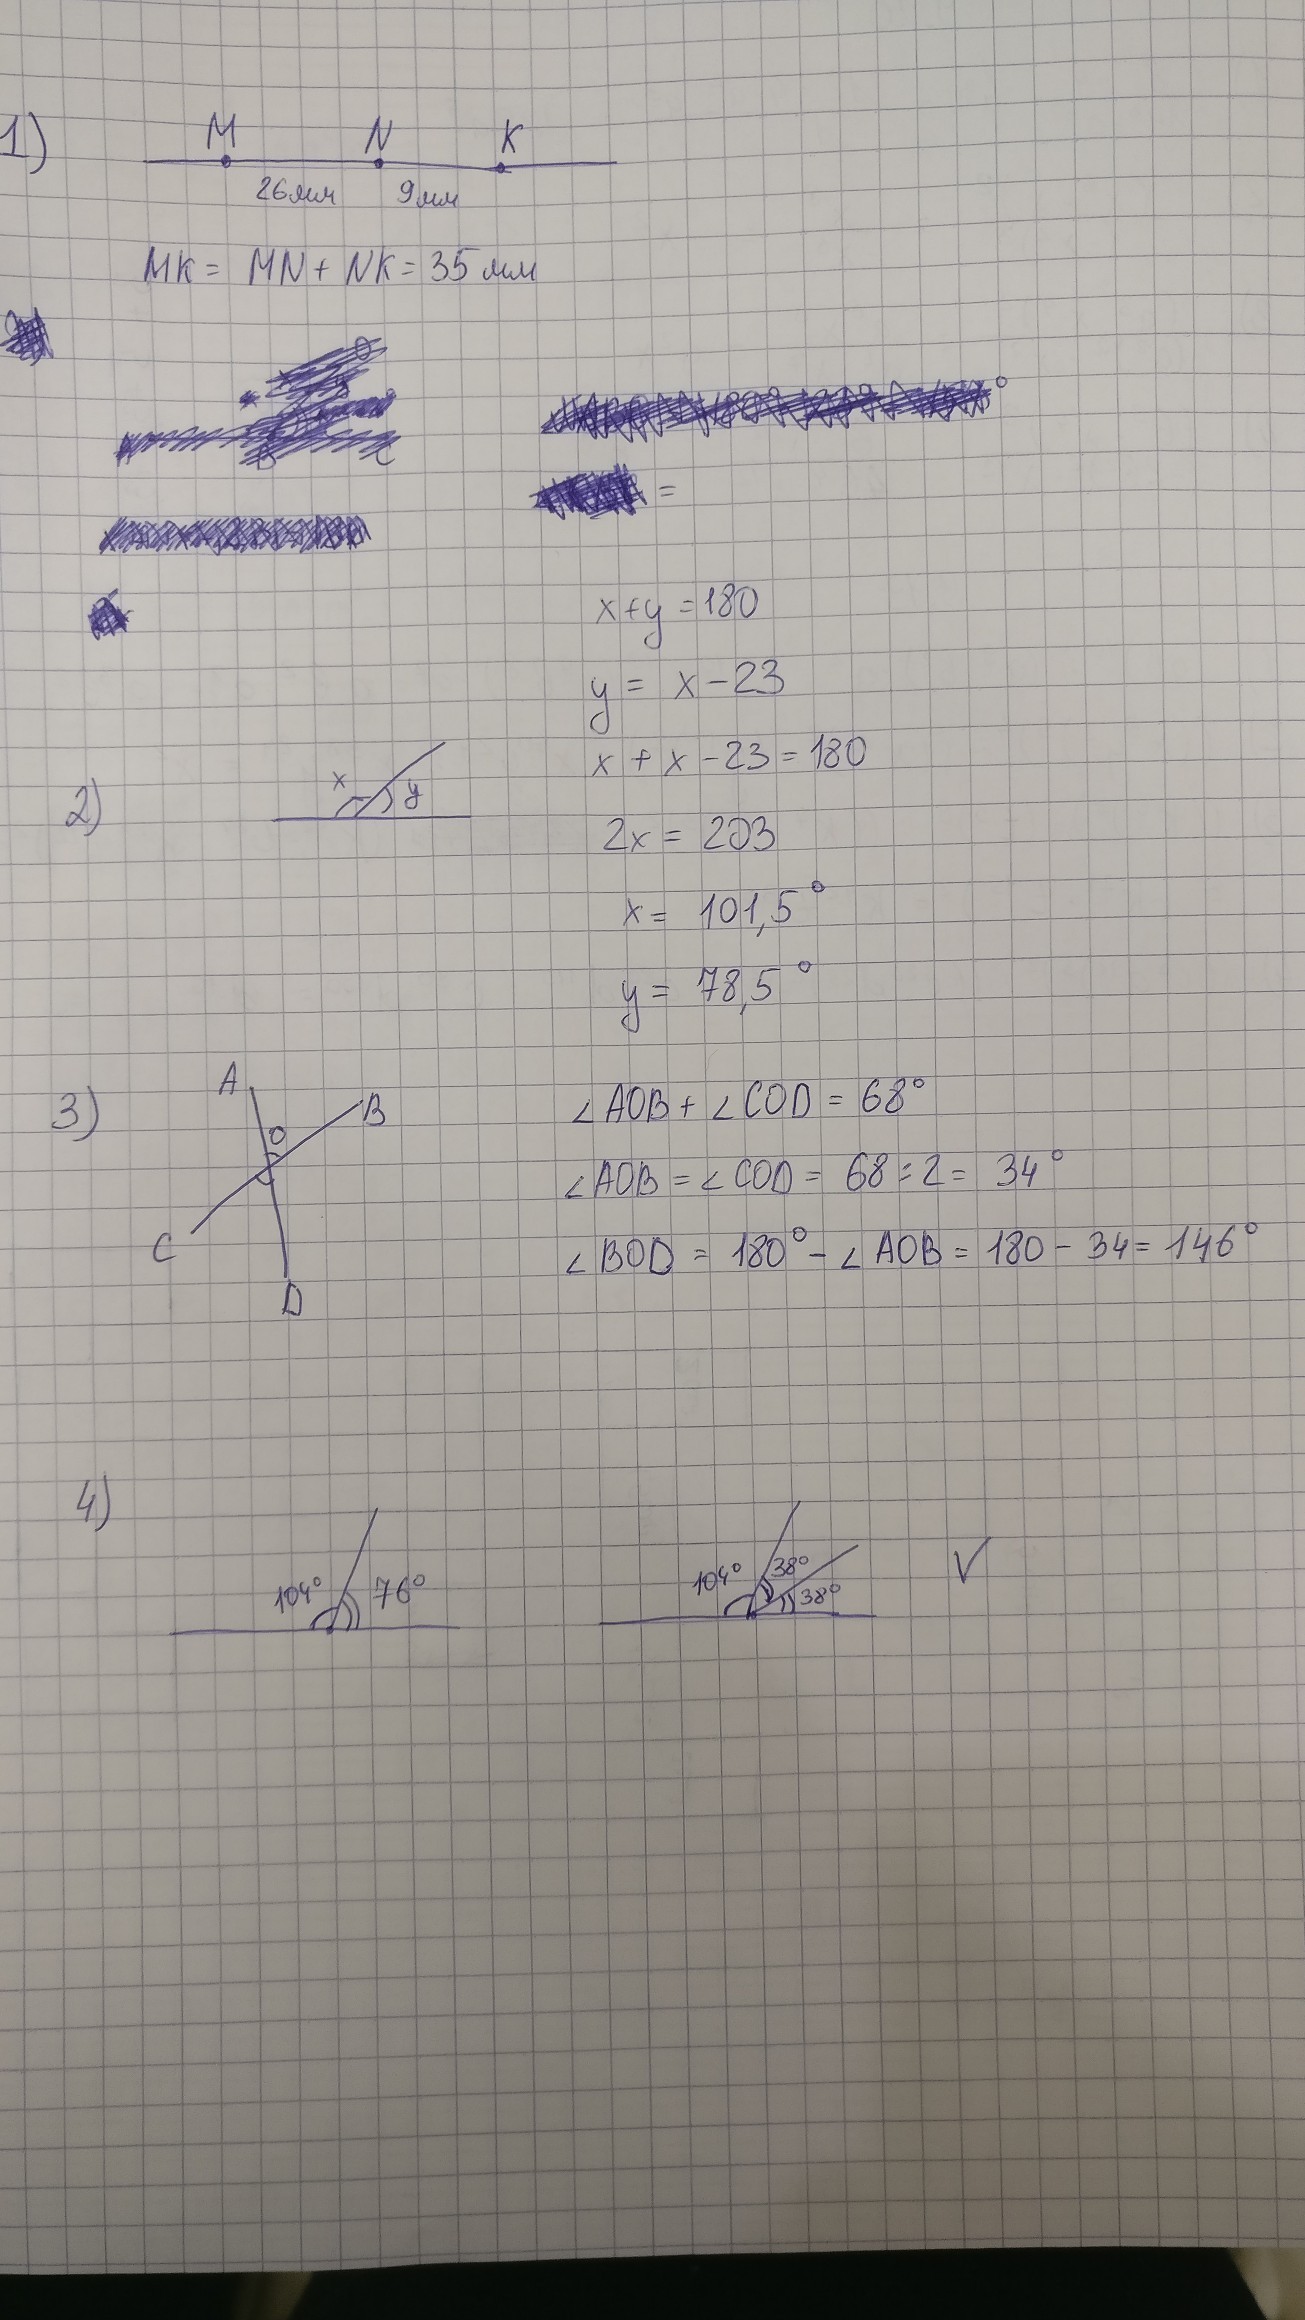 1)
M N K
26мм 9мм
MK = MN + NK = 35 мм
x+y = 180
y = x - 23
x + x - 23 = 180
2)
x y
2x = 203
x = 101,5°
y = 78,5°
3)
A B
O
C
D
∠AOB + ∠COD = 68°
∠AOB = ∠COD = 68 : 2 = 34°
∠BOD = 180° - ∠AOB = 180 - 34 = 146°
4)
104° 76°
104° 38° 38° V